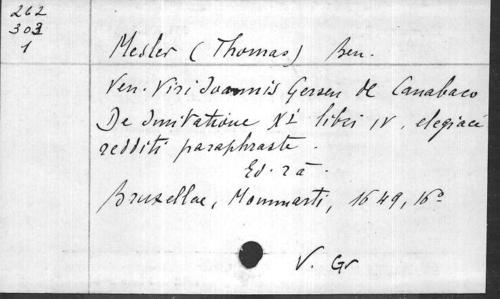 262
303
1
Mesler (Thomas) Ben.
Ven. Viri Joannis Gersen de Canabaco
De Imitatione Xi libri IV. elegiacè
redditi paraphraste.
Ed. 2a.
Bruxellae, Mommarti, 1649, 16o
V. Gr